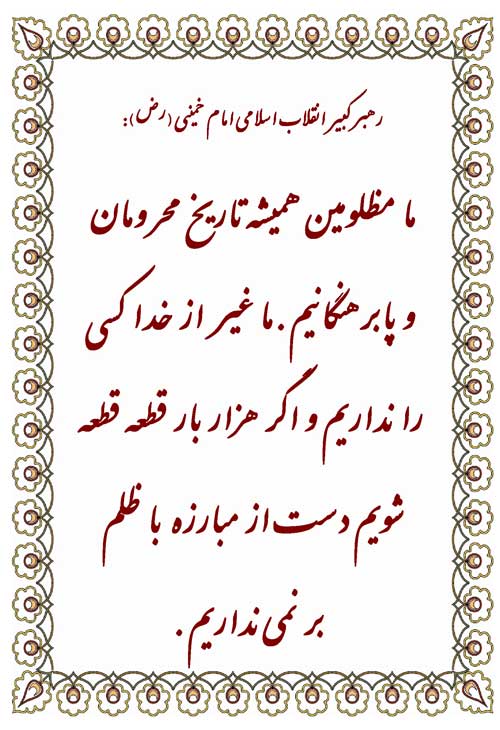 رهبر کبیر انقلاب اسلامی امام خمینی (رض):
ما مظلومین همیشه تاریخ محرومان
و پابرهنگانیم. ما غیر از خدا کسی
را نداریم و اگر هزار بار قطعه قطعه
شویم دست از مبارزه با ظلم
بر نمی نداریم.